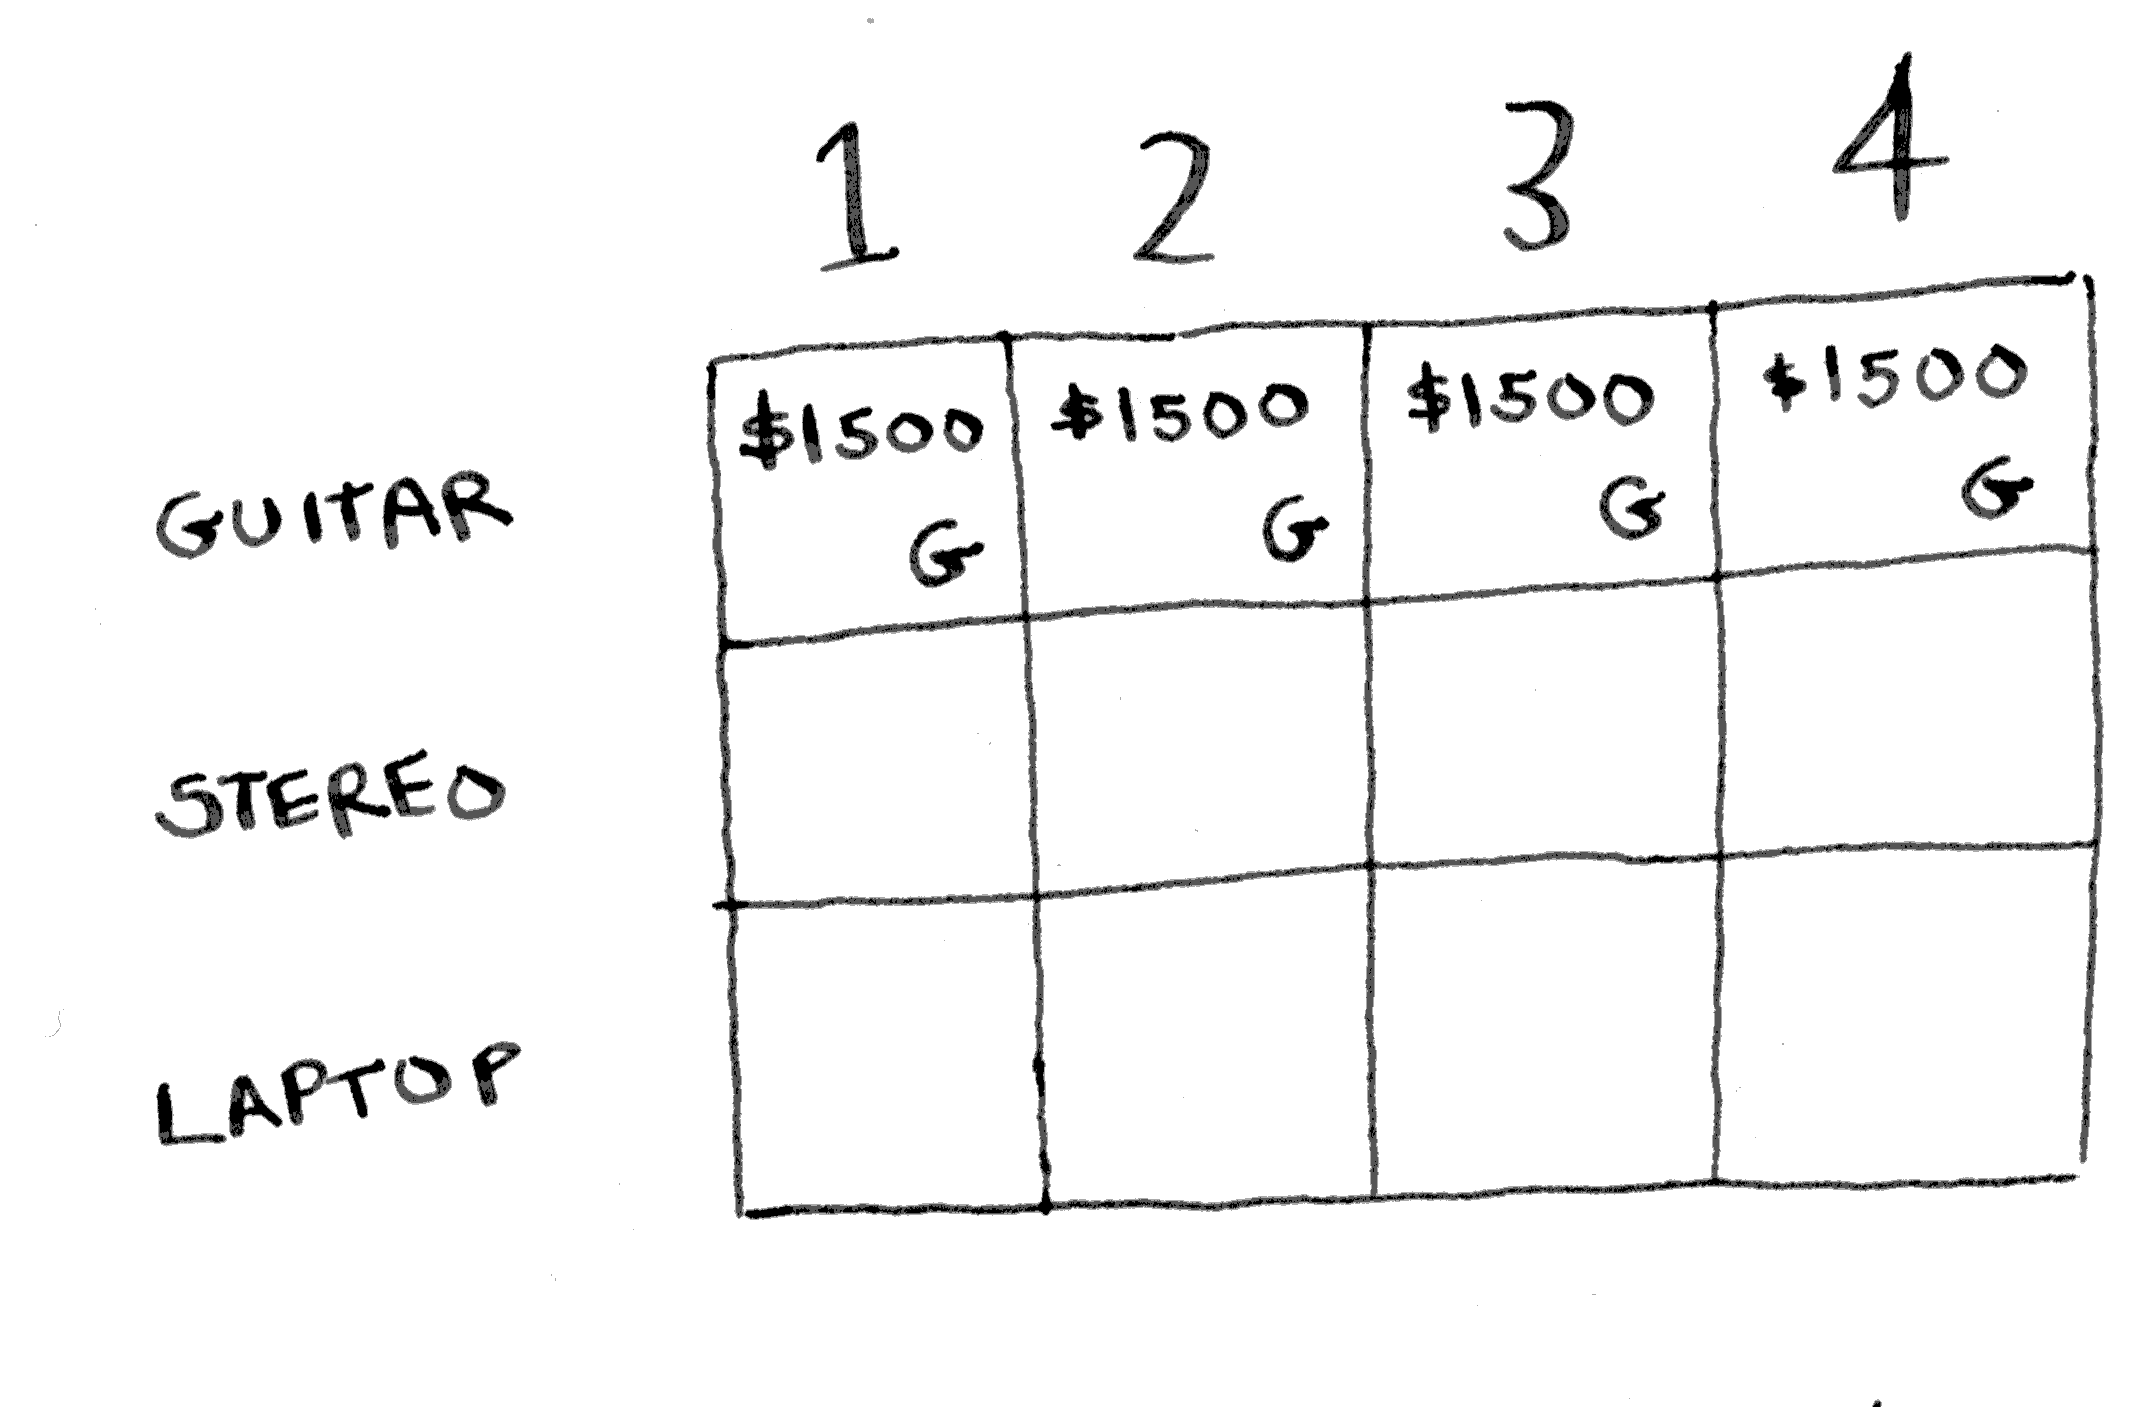 1 2 3 4
GUITAR $1500 G $1500 G $1500 G $1500 G
STEREO
LAPTOP